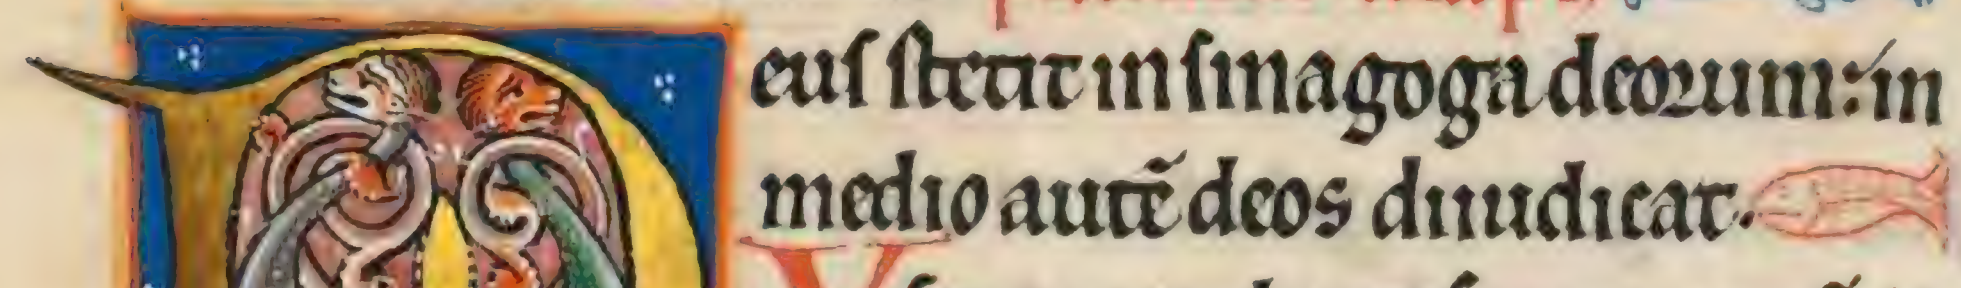 Deus stetit in sinagoga deorum: in
medio autē deos diiudicat.